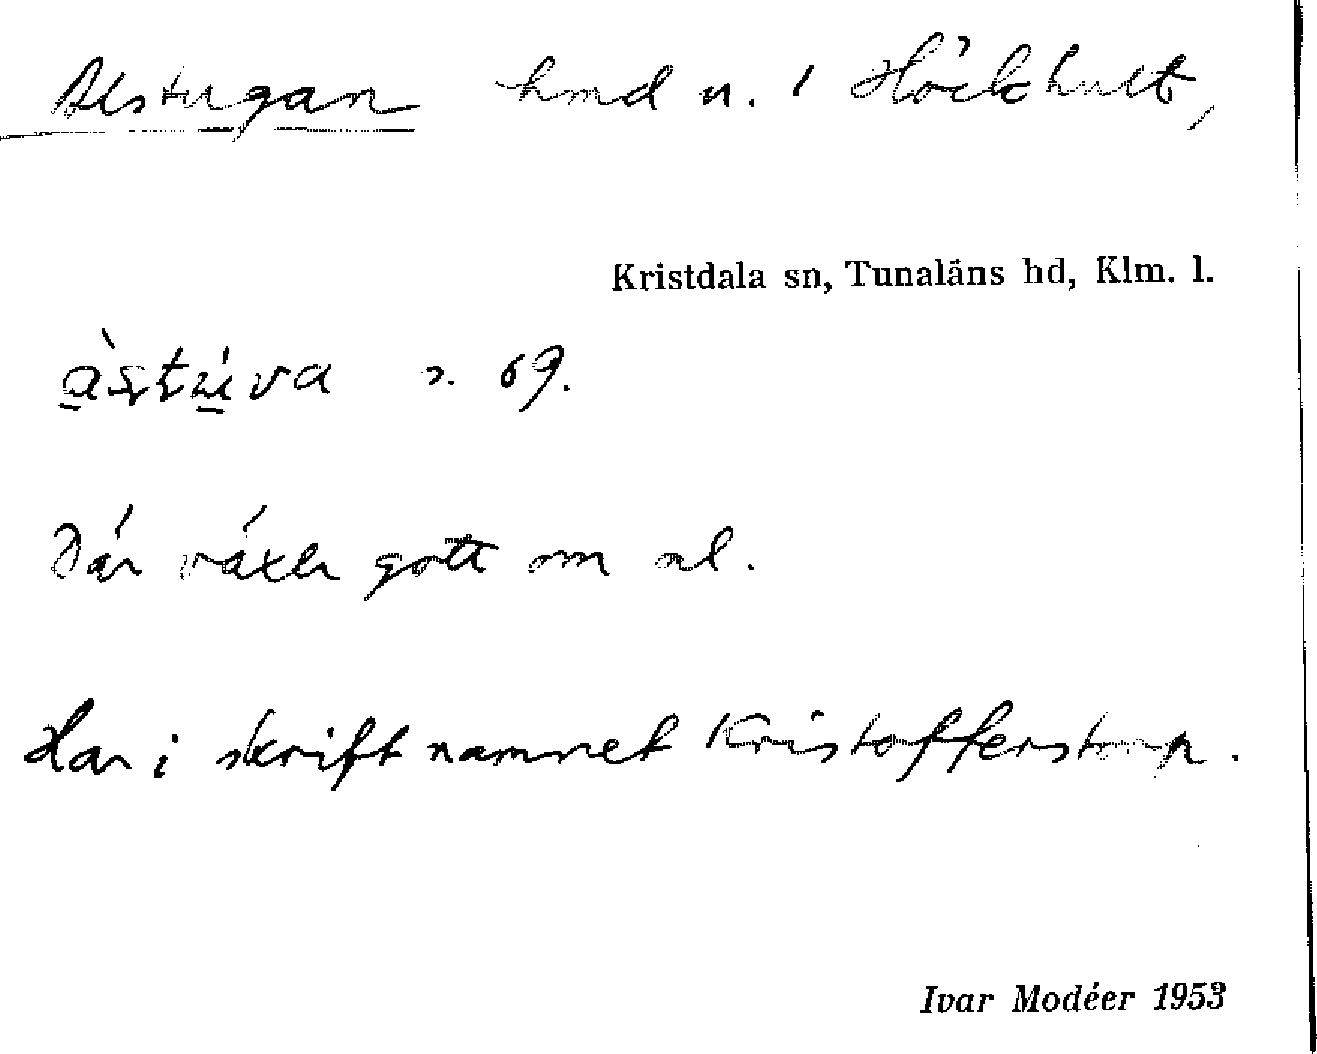 Alstugan hmd u. i Höckhult,
Kristdala sn, Tunaläns hd, Klm. l.
s. 69.
Där växer gott om al.
Har i skrift namnet Kristofferstorp.
Ivar Modéer 1953